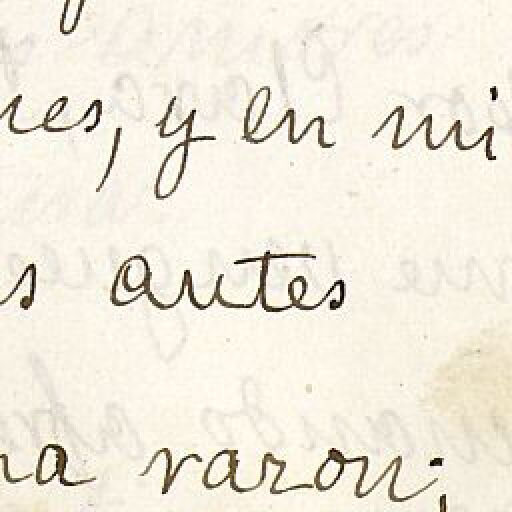 nes, y en mi
s antes
na razon;